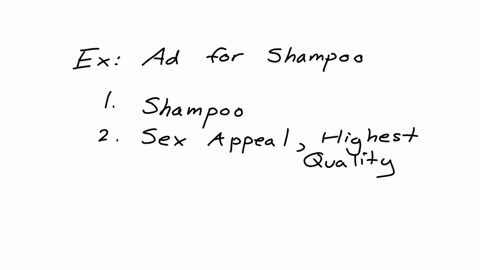 Ex: Ad for Shampoo
1. Shampoo
2. Sex Appeal, Highest
Quality